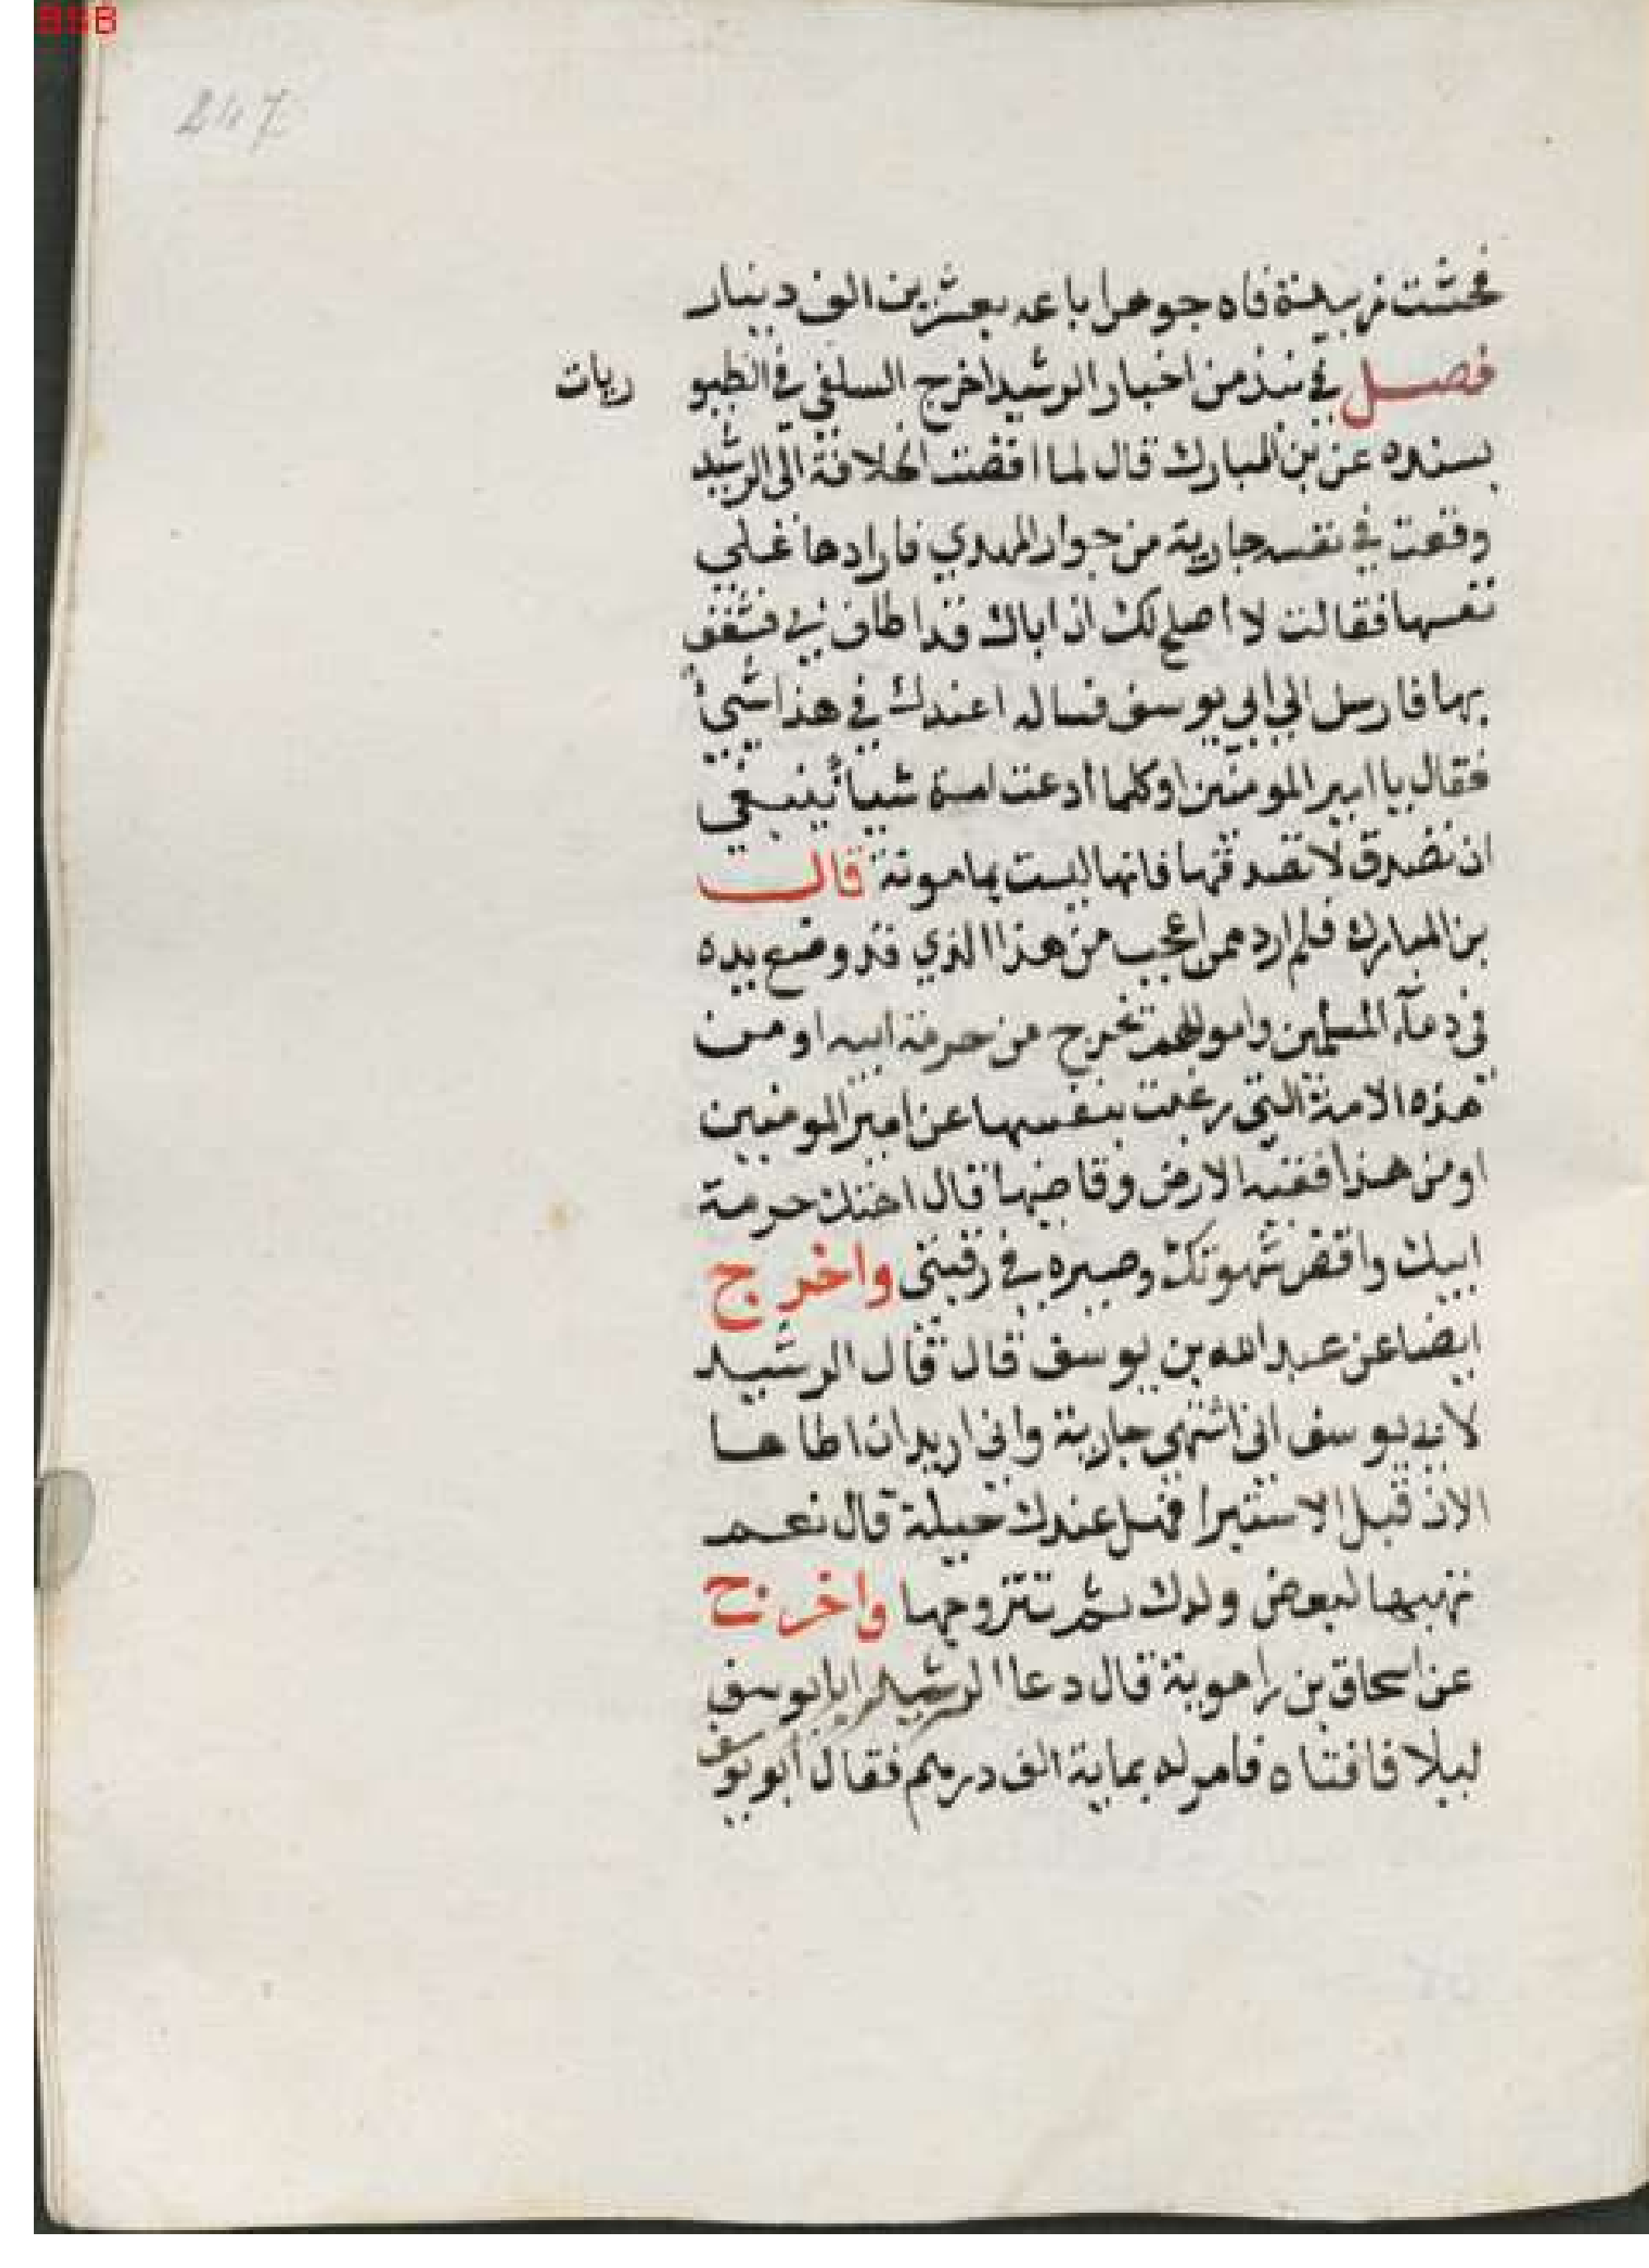 BSB
247
فحشت زبيدة فاه جوهرا باعه بعشرين الف دينار
فصل في نبذ من اخبار الرشيد اخرج السلفي في الطيو
ريات
بسنده عن بن المبارك قال لما افضت الخلافة الى الرشيد
وقعت في نفسه جارية من جوار المهدي فارادها علي
نفسها فقالت لا اصلح لك ان اباك قد اطاف بي فشغف
بها فارسل الي ابي يوسف فساله اعندك في هذا شئ
فقال يا امير المومنين او كلما ادعت امة شيأ ينبغي
ان تصدق لا تصدقها فانها ليست بمامونة قالـــ
بن المبارك فلم ادر ممن اعجب من هذا الذي قد وضع يده
في دمآء المسلمين واموالهم تحرج عن حرمة ابيه او من
هذه الامة التي رغبت بنفسها عن امير المومنين
او من هذا فقيه الارض وقاضيها قال اهتك حرمة
ابيك واقض شهوتك وصيره في رقبتي واخرج
ايضا عن عبد الله بن يوسف قال قال الرشيد
لابي يوسف اني اشتهي جارية واني اريد ان اطاها
الان قبل الاستبرا فهل عندك حيلة قال نعم
تهبها لبعض ولدك ثم تتزوجها واخرج
عن اسحاق بن راهوية قال دعا الرشيد ابا يوسف
ليلا فافتاه فامر له بماية الف درهم فقال ابو يوسف